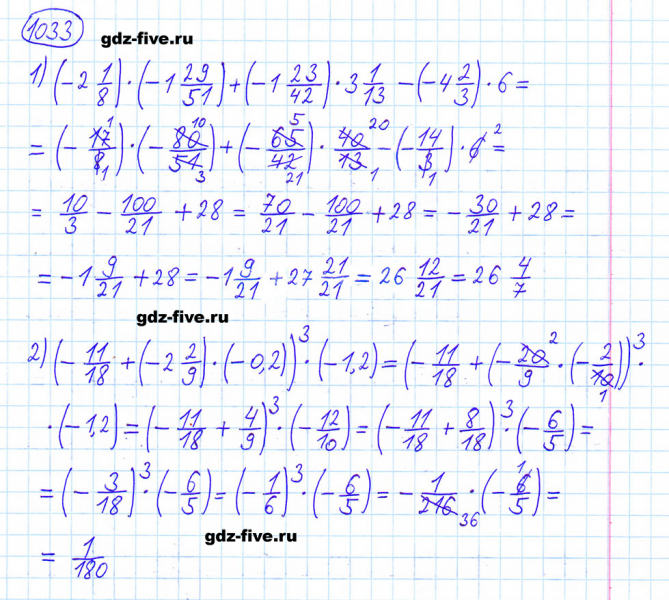 1033 gdz-five.ru
1) (-2 1/8) · (-1 29/51) + (-1 23/42) · 3 1/13 - (-4 2/3) · 6 =
= (-17/8) · (-80/51) + (-65/42) · 40/13 - (-14/3) · 6 = 1 1 10 3 5 21 20 1 1 2
= 10/3 - 100/21 + 28 = 70/21 - 100/21 + 28 = -30/21 + 28 =
= -1 9/21 + 28 = -1 9/21 + 27 21/21 = 26 12/21 = 26 4/7
gdz-five.ru
2) (-11/18 + (-2 2/9) · (-0,2))³ · (-1,2) = (-11/18 + (-20/9 · (-2/10)))³ · 2 1
· (-1,2) = (-11/18 + 4/9)³ · (-12/10) = (-11/18 + 8/18)³ · (-6/5) =
= (-3/18)³ · (-6/5) = (-1/6)³ · (-6/5) = -1/216 · (-6/5) = 36 1
gdz-five.ru
= 1/180